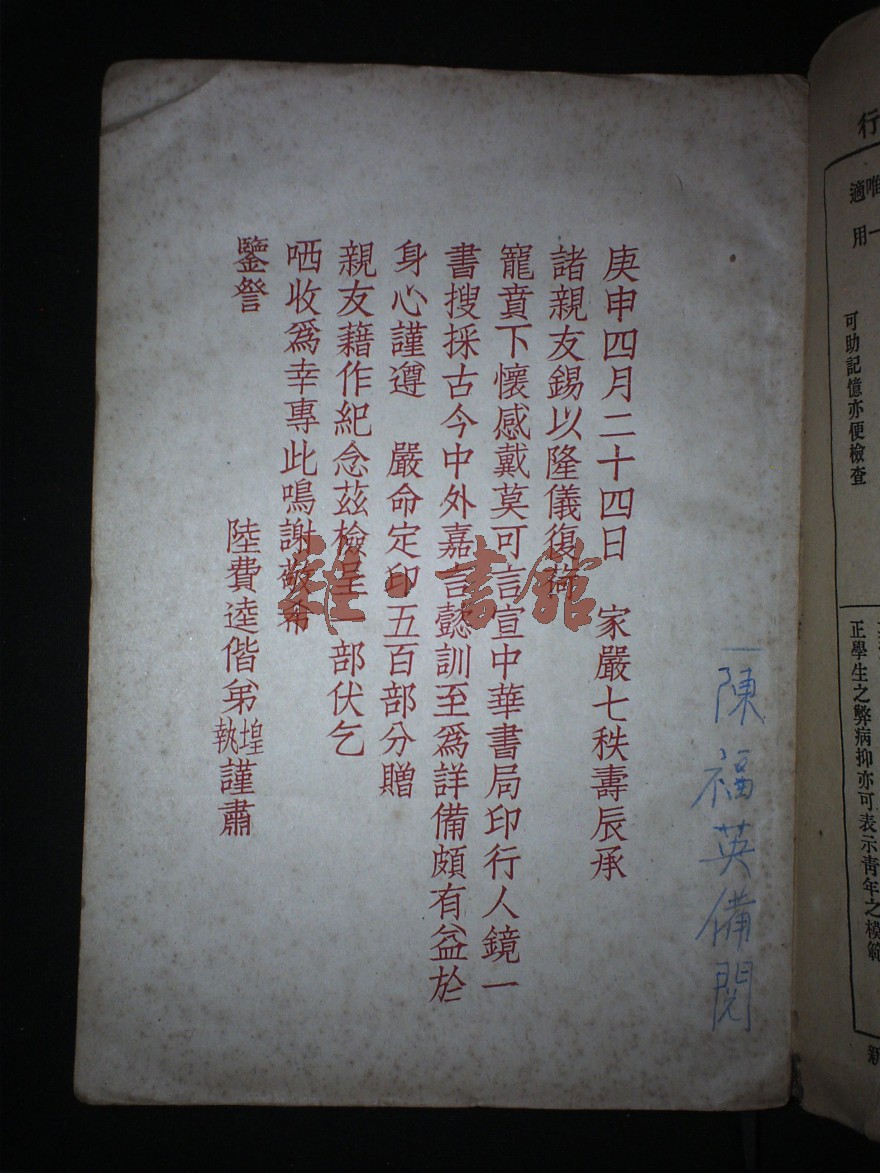 行
唯一
適用
可助記憶亦便檢查
正學生之弊病抑亦可表示青年之模範
新
陳福英備閱
庚申四月二十四日 家嚴七秩壽辰承
諸親友錫以隆儀復荷
寵賁下懷感戴莫可言宣中華書局印行人鏡一
書搜採古今中外嘉言懿訓至爲詳備頗有益於
身心謹遵 嚴命定印五百部分贈
親友藉作紀念茲檢呈一部伏乞
哂收爲幸專此鳴謝敬希
鑒詧
陸費逵偕弟堭執謹肅
雜·書館